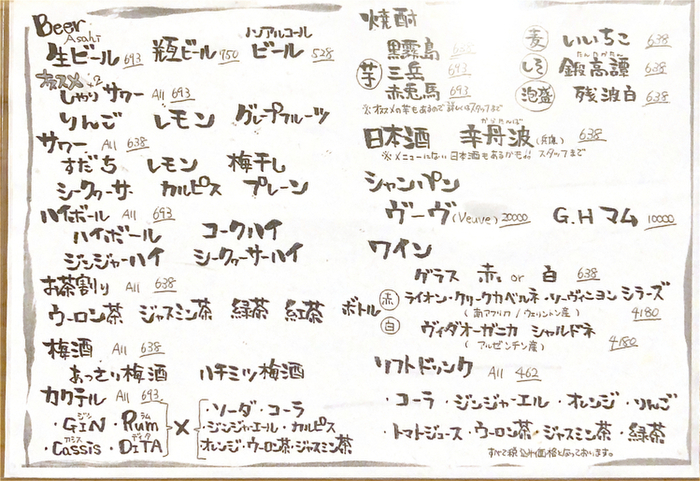 Beer
Asahi
生ビール 693 瓶ビール 950 ノンアルコールビール 528
オススメ
しゃりサワー All 693
りんご レモン グレープフルーツ
サワー All 638
すだち レモン 梅干し
シークヮーサー カルピス プレーン
ハイボール All 693
ハイボール コークハイ
ジンジャーハイ シークヮーサーハイ
お茶割り All 638
ウーロン茶 ジャスミン茶 緑茶 紅茶
梅酒 All 638
あっさり梅酒 ハチミツ梅酒
カクテル All 693
・GIN ジン ・Rum ラム
・Cassis カシス ・DITA ディタ
×
・ソーダ・コーラ
・ジンジャーエール・カルピス
オレンジ・ウーロン茶・ジャスミン茶
焼酎
芋
黒霧島 638
三岳 693
赤兎馬 693
※オススメの芋もあるので詳しくはスタッフまで
麦 いいちこ 638
しそ 鍛高譚 たんたかたん 638
泡盛 残波白 638
日本酒 辛丹波 からたんば 638
※メニューにない日本酒もあるかも!! スタッフまで
シャンパン
ヴーヴ (Veuve) 20000 G.H マム 10000
ワイン
グラス 赤 or 白 638
ボトル
赤 ライオン・クリークカベルネ・ソーヴィニヨン シラーズ
(南アフリカ / ウェリントン産) 4180
白 ヴィダオーガニカ シャルドネ
(アルゼンチン産) 4180
ソフトドリンク All 462
・コーラ ・ジンジャーエール ・オレンジ ・りんご
・トマトジュース ・ウーロン茶 ・ジャスミン茶 ・緑茶
すべて税込み価格となっております。